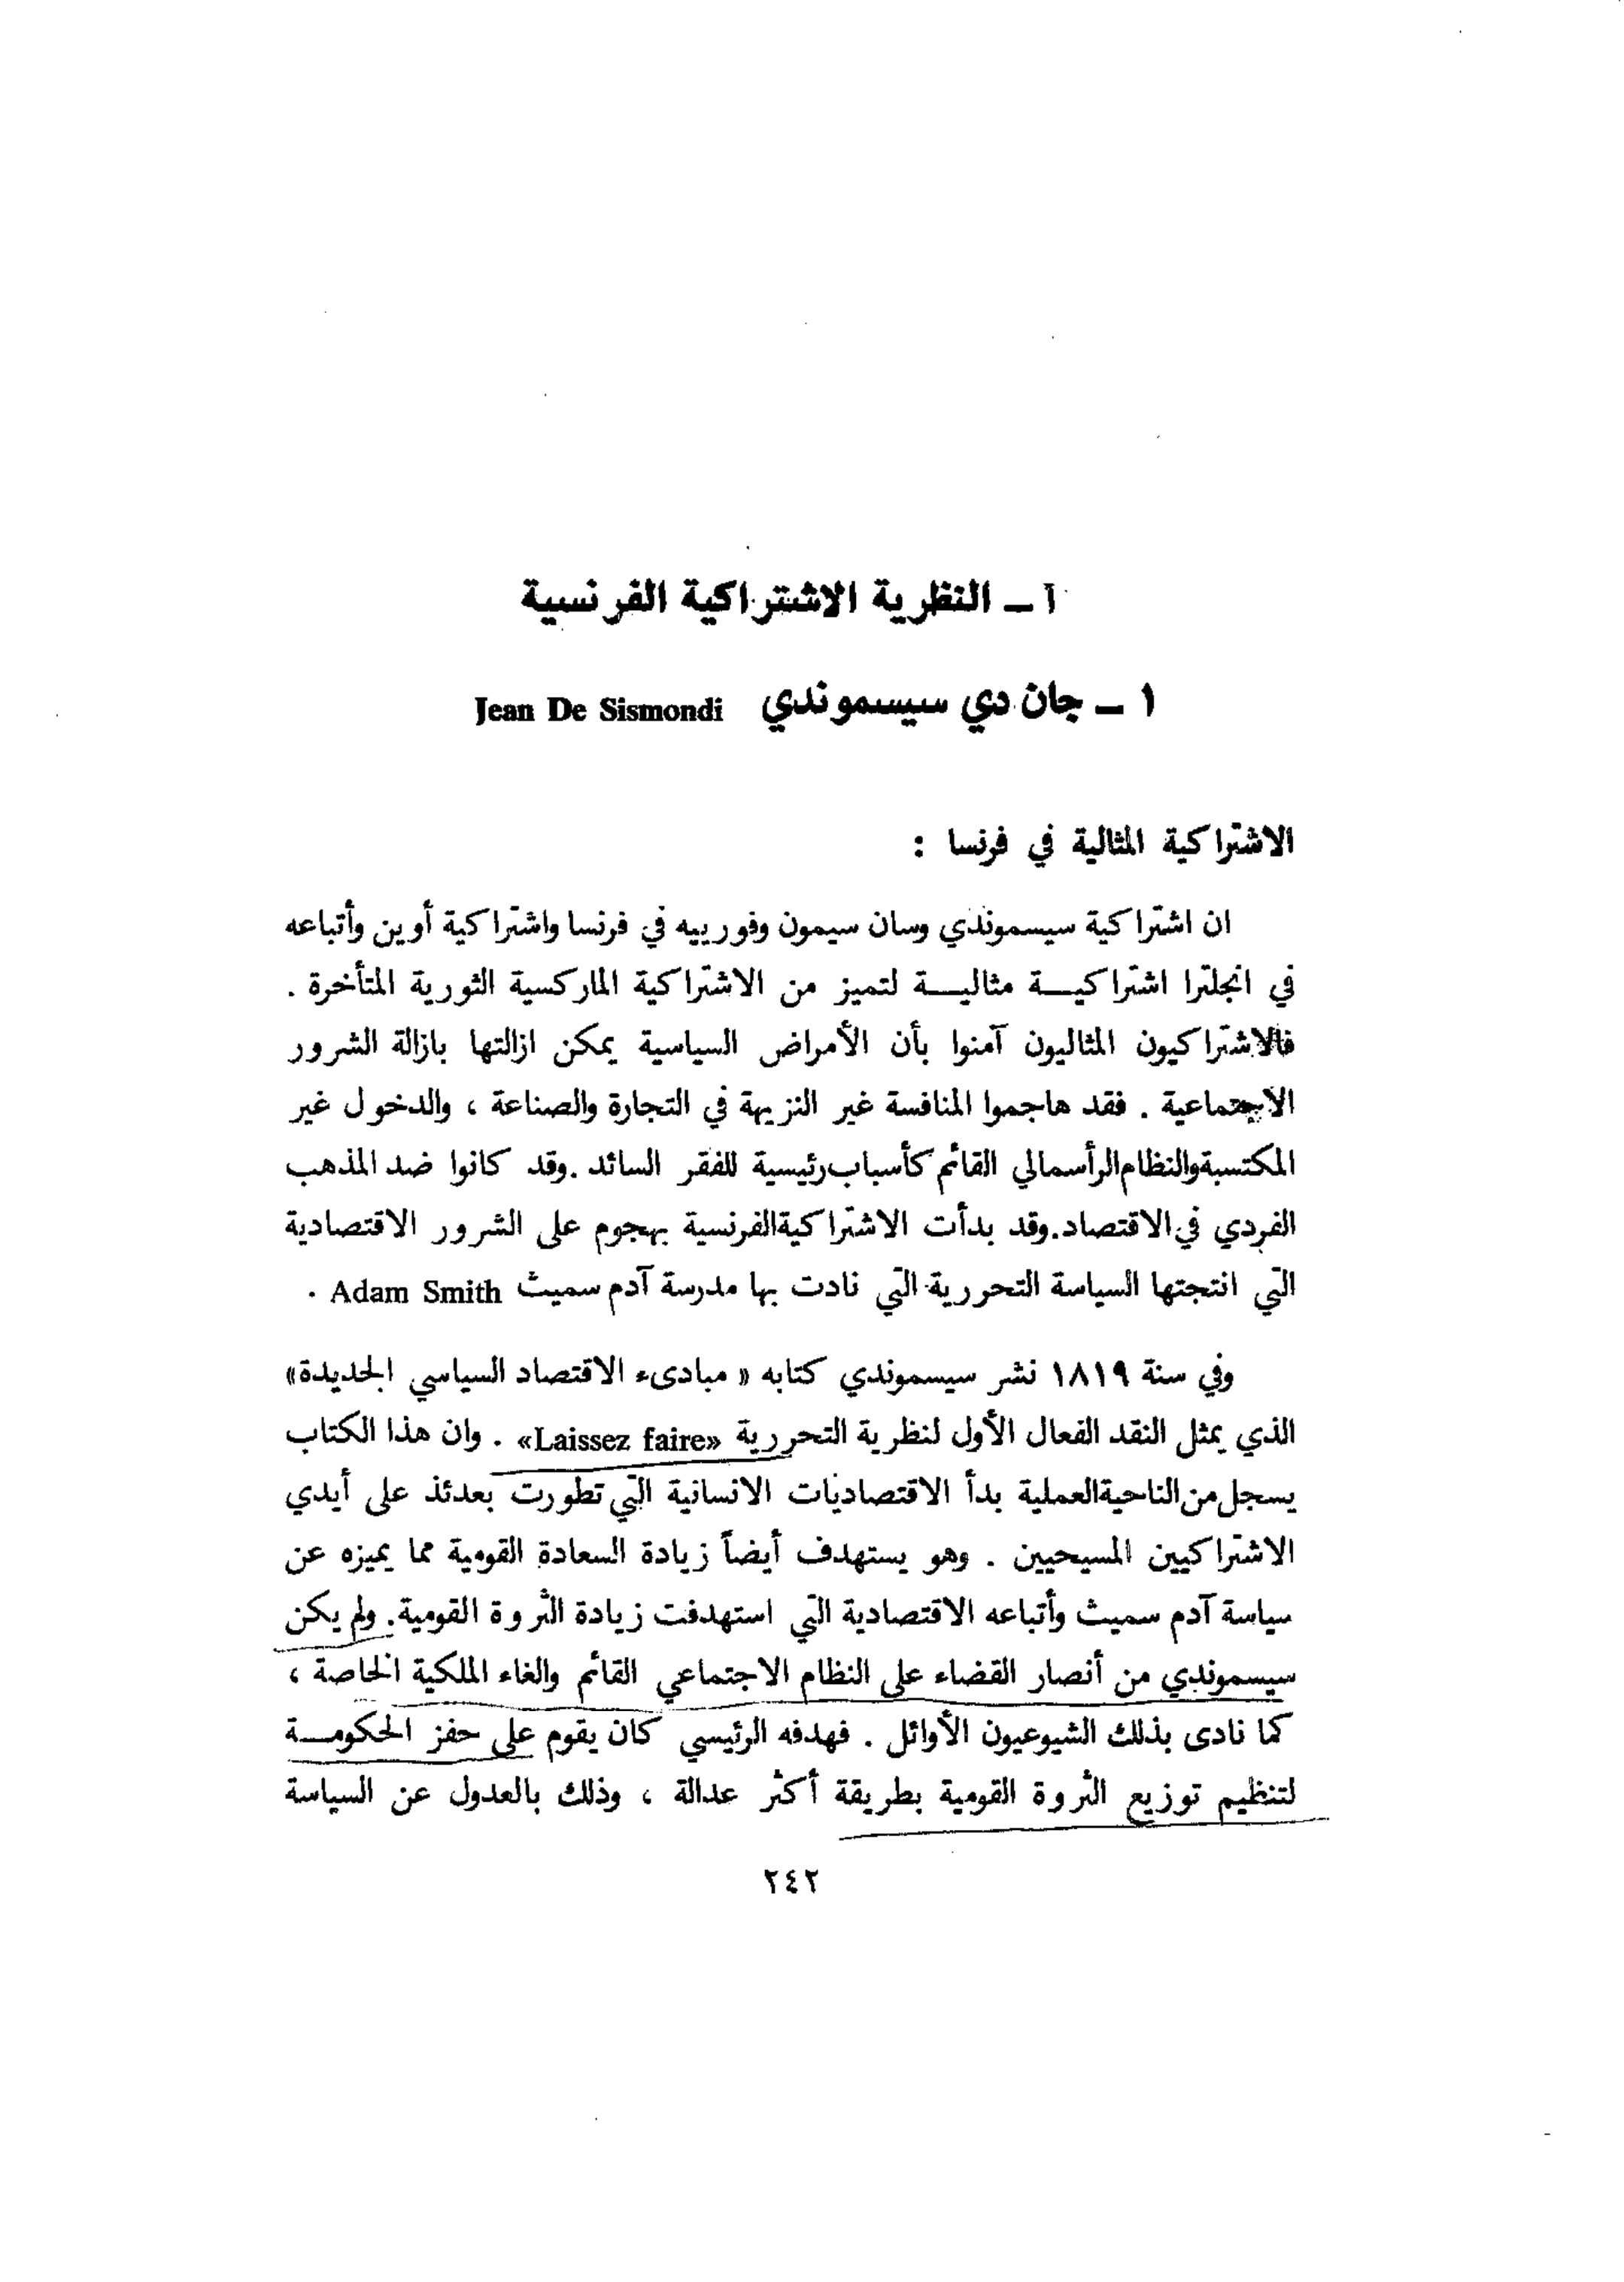 آ ــ النظرية الاشتراكية الفرنسية
١ ــ جان دي سيسموندي Jean De Sismondi
الاشتراكية المثالية في فرنسا :
ان اشتراكية سيسموندي وسان سيمون وفورييه في فرنسا واشتراكية أوين وأتباعه
في انجلترا اشتراكيـــة مثاليـــة لتميز من الاشتراكية الماركسية الثورية المتأخرة .
فالاشتراكيون المثاليون آمنوا بأن الأمراض السياسية يمكن ازالتها بازالة الشرور
الاجتماعية . فقد هاجموا المنافسة غير النزيهة في التجارة والصناعة ، والدخول غير
المكتسبة والنظام الرأسمالي القائم كأسباب رئيسية للفقر السائد . وقد كانوا ضد المذهب
الفردي في الاقتصاد. وقد بدأت الاشتراكية الفرنسية بهجوم على الشرور الاقتصادية
التي انتجتها السياسة التحررية التي نادت بها مدرسة آدم سميث Adam Smith .
وفي سنة ١٨١٩ نشر سيسموندي كتابه « مبادىء الاقتصاد السياسي الجديدة»
الذي يمثل النقد الفعال الأول لنظرية التحررية «Laissez faire» . وان هذا الكتاب
يسجل من الناحية العملية بدأ الاقتصاديات الانسانية التي تطورت بعدئذ على أيدي
الاشتراكيين المسيحيين . وهو يستهدف أيضاً زيادة السعادة القومية مما يميزه عن
سياسة آدم سميث وأتباعه الاقتصادية التي استهدفت زيادة الثروة القومية. ولم يكن
سيسموندي من أنصار القضاء على النظام الاجتماعي القائم والغاء الملكية الخاصة ،
كما نادى بذلك الشيوعيون الأوائل . فهدفه الرئيسي كان يقوم على حفز الحكومـــة
لتنظيم توزيع الثروة القومية بطريقة أكثر عدالة ، وذلك بالعدول عن السياسة
٢٤٢